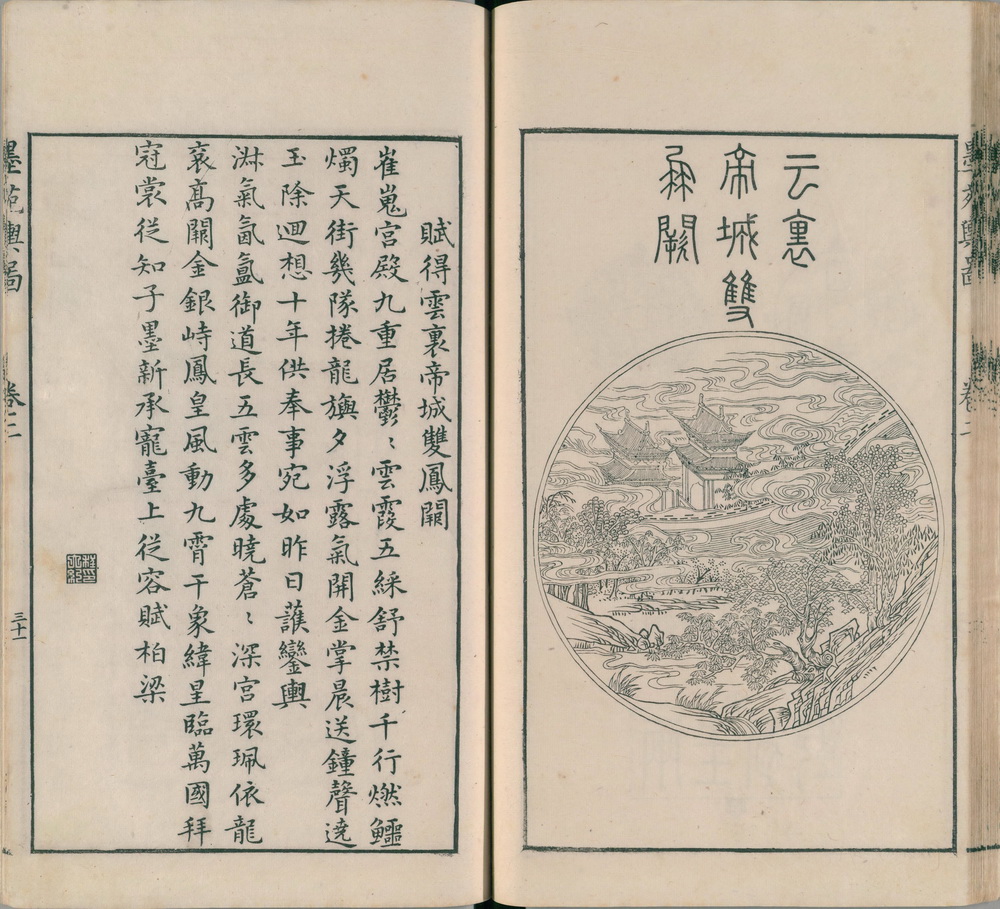 云裏
帝城雙
鳳闕
墨苑輿圖 卷二
賦得雲裏帝城雙鳳闕
崔嵬宮殿九重居鬱〻雲霞五綵舒禁樹千行燃鱷
燭天街幾隊捲龍旟夕浮露氣開金掌晨送鐘聲遶
玉除迴想十年供奉事宛如昨日護鑾輿
淑氣氤氳御道長五雲多處曉蒼〻深宮環珮依龍
袞高闕金銀峙鳳皇風動九霄干象緯星臨萬國拜
冠裳從知子墨新承寵臺上從容賦柏梁
墨苑輿圖 卷二 三十一